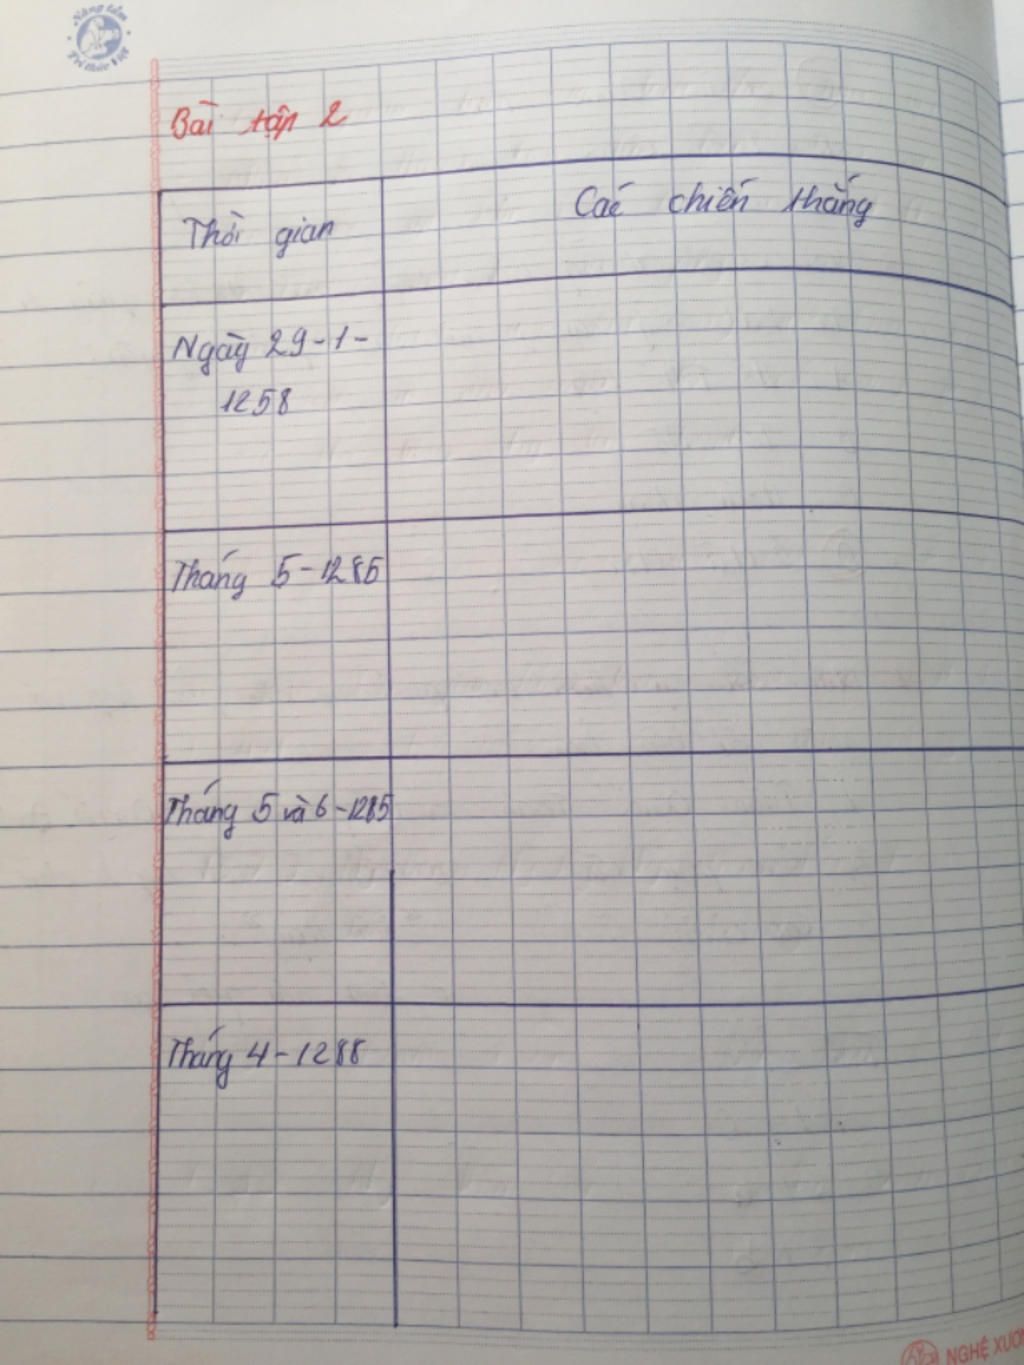 Nâng tầm
Tri thức Việt
Bài tập 2
Thời gian
Các chiến thắng
Ngày 29-1-
1258
Tháng 5-1285
Tháng 5 và 6-1285
Tháng 4-1288